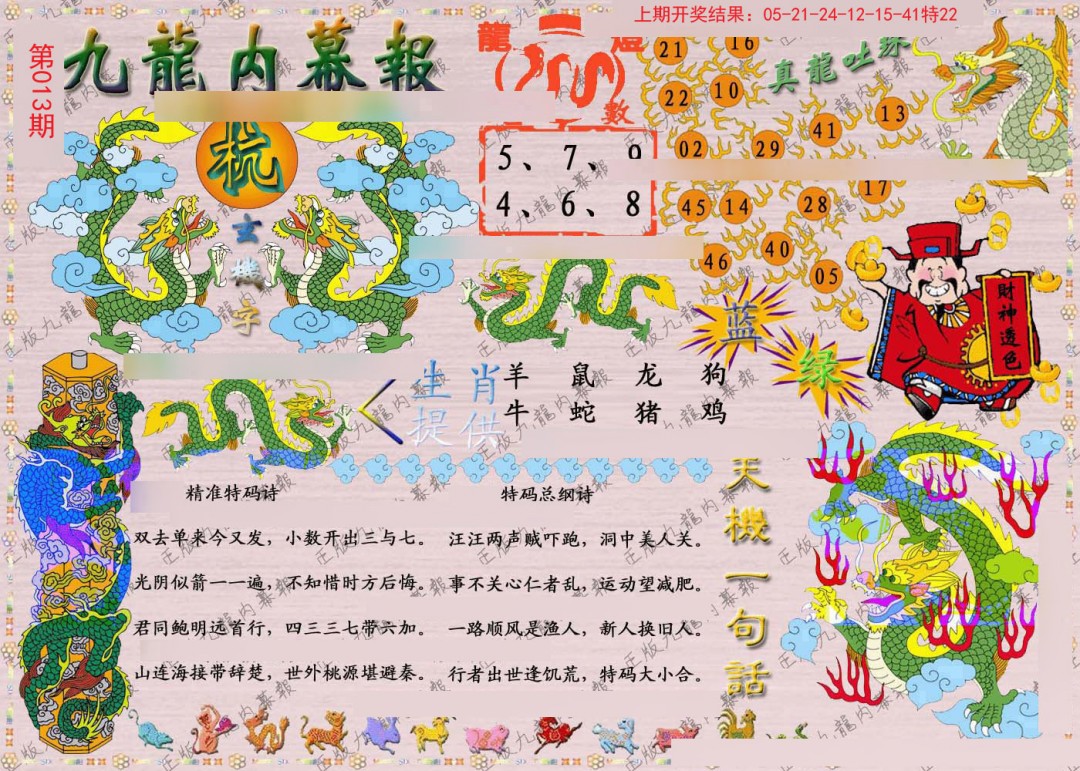 上期开奖结果：05-21-24-12-15-41特22
第013期
九龍内幕報
龍
數
真龍吐珠
21 16
22 10
02 29 41 13
45 14 28 17
46 40 05
5、7、9
4、6、8
玄機字
蓝
绿
財神透色
生肖提供
羊 鼠 龙 狗
牛 蛇 猪 鸡
精准特码诗
双去单来今又发，小数开出三与七。
光阴似箭一一遍，不知惜时方后悔。
君同鲍明远首行，四三三七带六加。
山连海接带辞楚，世外桃源堪避秦。
特码总纲诗
汪汪两声贼吓跑，洞中美人关。
事不关心仁者乱，运动望减肥。
一路顺风是渔人，新人换旧人。
行者出世逢饥荒，特码大小合。
天機一句話
正版九龍内幕報